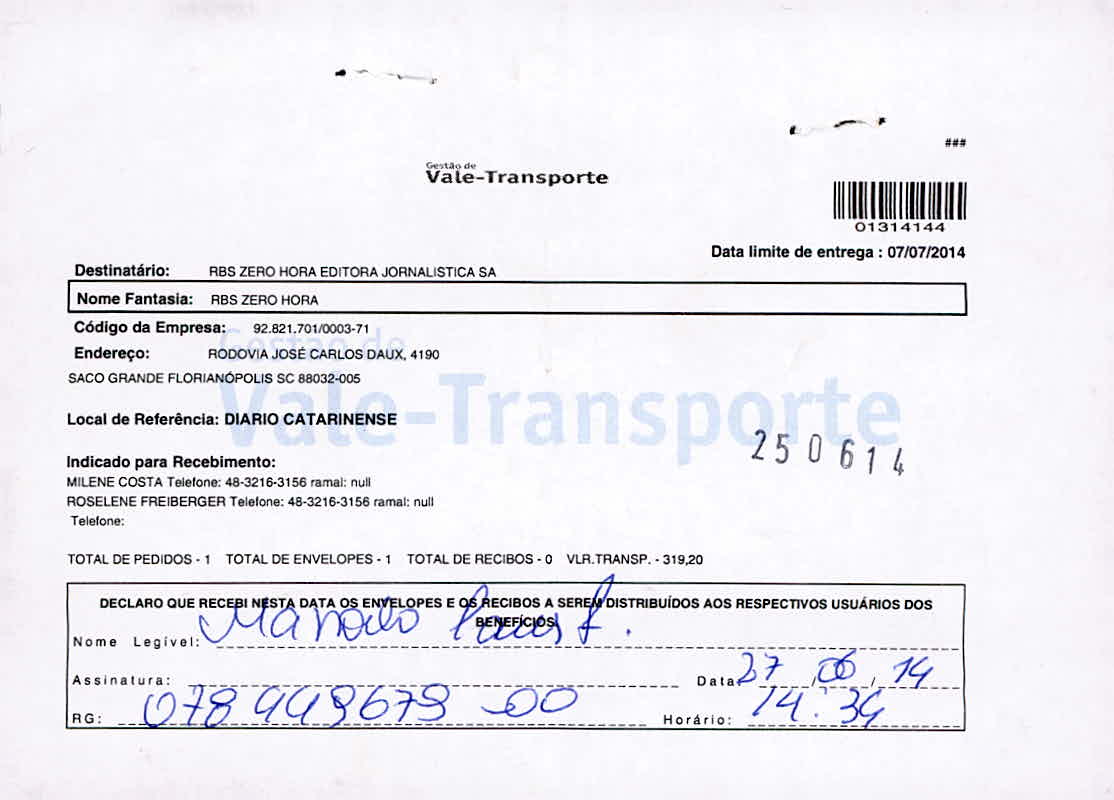 ###
Gestão de
Vale-Transporte
01314144
Data limite de entrega : 07/07/2014
Destinatário: RBS ZERO HORA EDITORA JORNALISTICA SA
Nome Fantasia: RBS ZERO HORA
Código da Empresa: 92.821.701/0003-71
Gestão de
Endereço: RODOVIA JOSÉ CARLOS DAUX, 4190
SACO GRANDE FLORIANÓPOLIS SC 88032-005
Vale-Transporte
Local de Referência: DIARIO CATARINENSE
250614
Indicado para Recebimento:
MILENE COSTA Telefone: 48-3216-3156 ramal: null
ROSELENE FREIBERGER Telefone: 48-3216-3156 ramal: null
Telefone:
TOTAL DE PEDIDOS - 1 TOTAL DE ENVELOPES - 1 TOTAL DE RECIBOS - 0 VLR.TRANSP. - 319,20
DECLARO QUE RECEBI NESTA DATA OS ENVELOPES E OS RECIBOS A SEREM DISTRIBUÍDOS AOS RESPECTIVOS USUÁRIOS DOS
BENEFÍCIOS.
Nome Legível:
Assinatura: Data: 27/06/14
RG: 078449679-00 Horário: 14:34